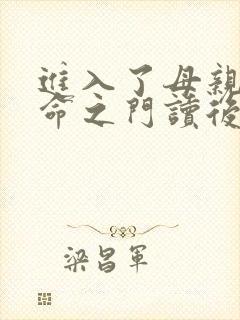 進入了母親
命之門讀後
梁昌軍